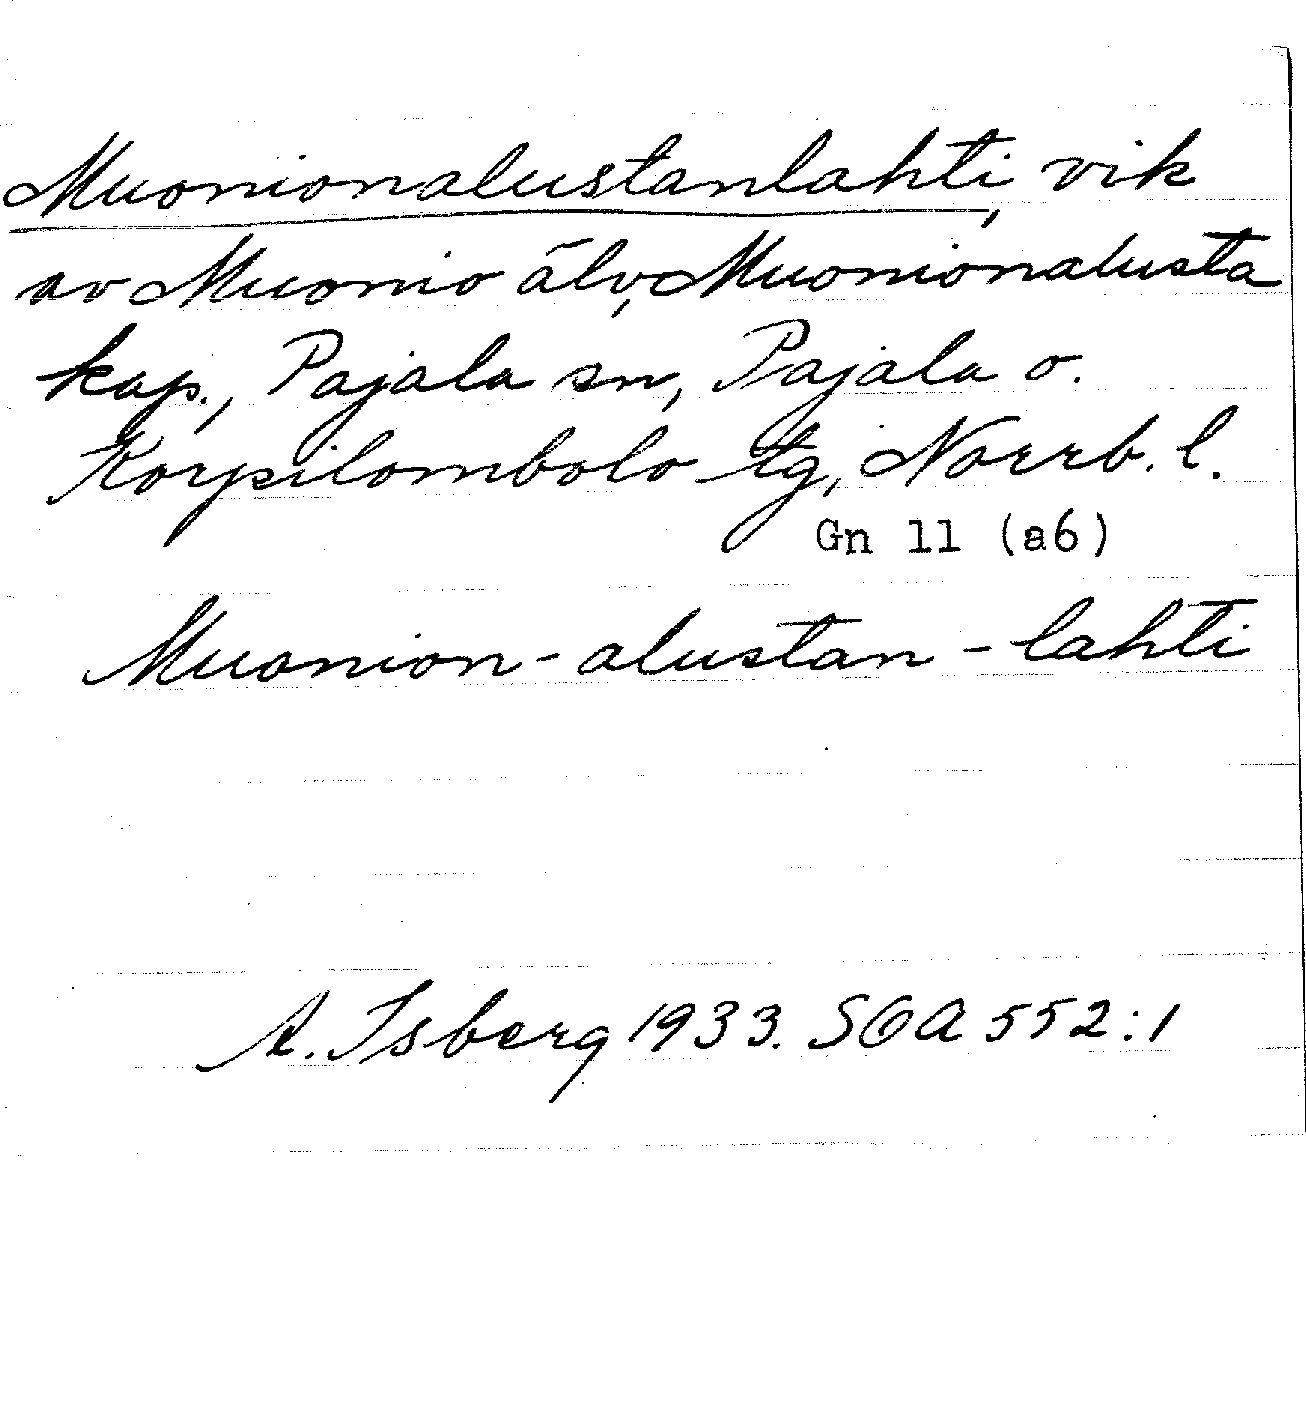 Muonionalustanlahti, vik
av Muonio älv, Muonionalusta
kap., Pajala sn, Pajala o.
Korpilombolo tg, Norrb. l.
Gn 11 (a6)
Muonion-alustan-lahti
A. Isberg 1933. SOA 552:1